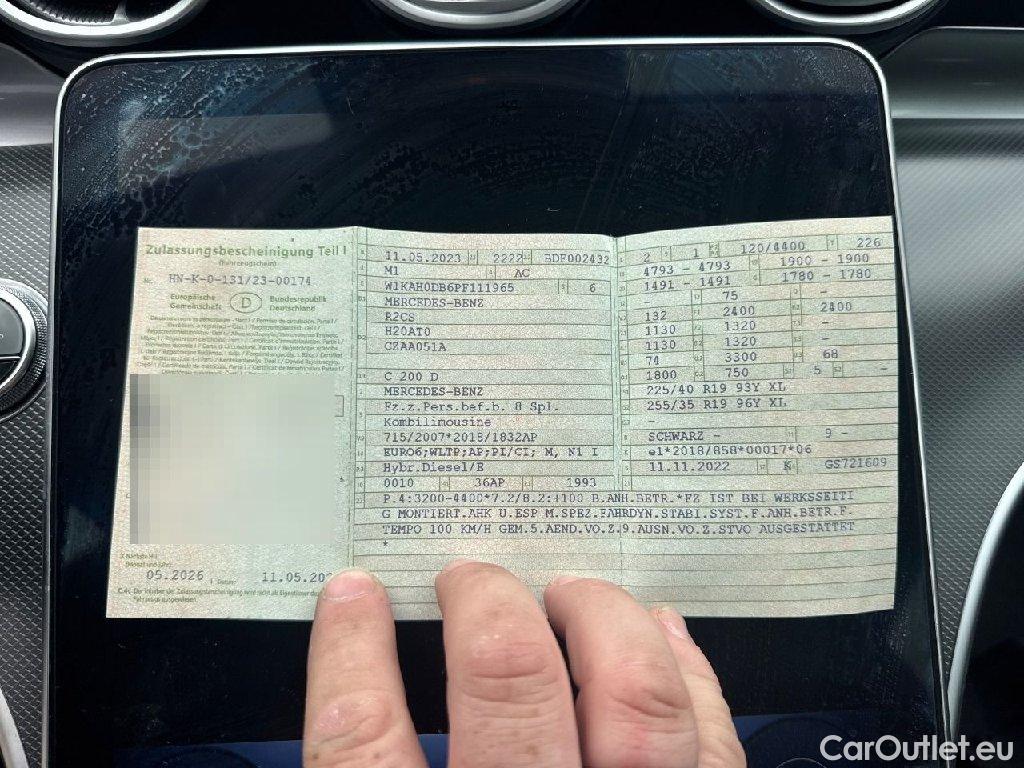 Zulassungsbescheinigung Teil I
(Fahrzeugschein)
Nr. HN-K-0-131/23-00174
Europäische Gemeinschaft D Bundesrepublik Deutschland
05.2026
11.05.20
11.05.2023 2222 BDF002432
M1 AC
W1KAH0DB6PF111965 6
MERCEDES-BENZ
R2CS
H20AT0
CZAA051A
C 200 D
MERCEDES-BENZ
Fz.z.Pers.bef.b. 8 Spl.
Kombilimousine
715/2007*2018/1832AP
EURO6;WLTP;AP;PI/CI; M, N1 I
Hybr.Diesel/E
0010 36AP 1993
2 1 120/4400 226
4793 - 4793 1900 - 1900
1491 - 1491 1780 - 1780
- 75 -
132 2400 2400
1130 1320 -
1130 1320 -
74 3300 68
1800 750 5 -
225/40 R19 93Y XL
255/35 R19 96Y XL
SCHWARZ - 9 -
e1*2018/858*00017*06
11.11.2022 K GS721609
P.4:3200-4400*7.2/8.2:+100 B.ANH.BETR.*FZ IST BEI WERKSSEITI
G MONTIERT.AHK U.ESP M.SPEZ.FAHRDYN.STABI.SYST.F.ANH.BETR.F.
TEMPO 100 KM/H GEM.5.AEND.VO.Z.9.AUSN.VO.Z.STVO AUSGESTATTET
*
CarOutlet.eu